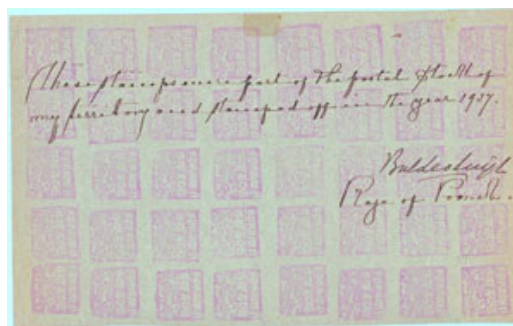 These stamps were part of the postal stock of
my territory and stamped off in the year
Raja of Poonch.